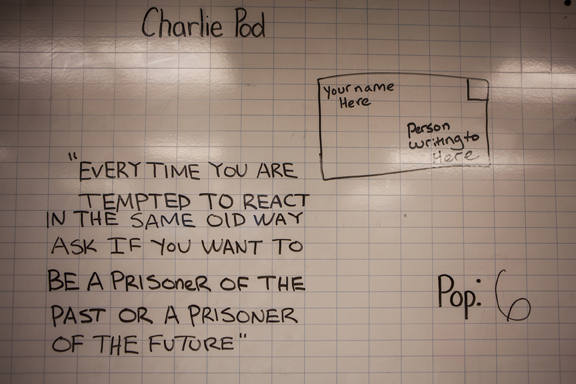 Charlie Pod
Your name
Here
Person
writing to
Here
"EVERY TIME YOU ARE
TEMPTED TO REACT
IN THE SAME OLD WAY
ASK IF YOU WANT TO
BE A PRISONER OF THE
PAST OR A PRISONER
OF THE FUTURE"
Pop: 6